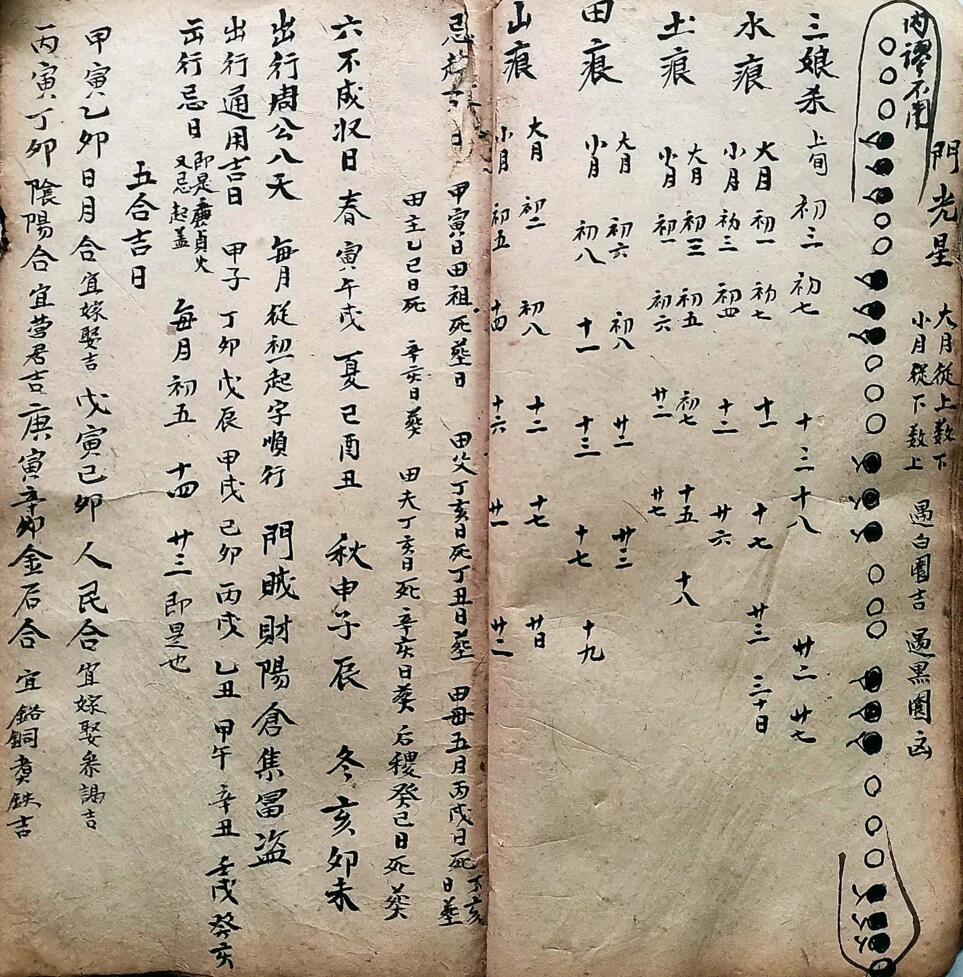 內謬不用
門光星 大月從上数下 小月從下数上 遇白圈吉 遇黑圈凶
三娘杀 上旬 初三 初七 十三 十八 廿二 廿七
水痕 大月 初一 初七 十一 十七 廿三 三十日
小月 初三 初四 十二 廿六
土痕 大月 初三 初五 初七 十五 十八
小月 初一 初六 廿二 廿七
田痕 大月 初六 初八 廿二 廿三
小月 初八 十一 十三 十七 十九
山痕 大月 初二 初八 十二 十七 廿日
小月 初五 十四 十六 廿一 廿二
忌 日 甲寅日田祖死塟日 田父丁亥日死丁丑日塟 田毋五月丙戌日死丁亥日塟
田主乙巳日死 辛亥日葵 田夫丁亥日死 辛亥日葵 后稷癸巳日死葵
六不成收日 春 寅午戌 夏 巳酉丑 秋 申子辰 冬 亥卯未
出行周公八天 每月從初一起字順行 門賊財陽倉集冨盗
出行通用吉日 甲子 丁卯 戊辰 甲戌 己卯 丙戌 乙丑 甲午 辛丑 壬戌 癸亥
出行忌日 即是廉貞火 又忌起盖 每月初五 十四 廿三 即是也
五合吉日
甲寅乙卯 日月合 宜嫁娶吉 戊寅己卯 人民合 宜嫁娶叅謁吉
丙寅丁卯 陰陽合 宜营君吉 庚寅辛卯 金石合 宜鉻銅煑鉄吉